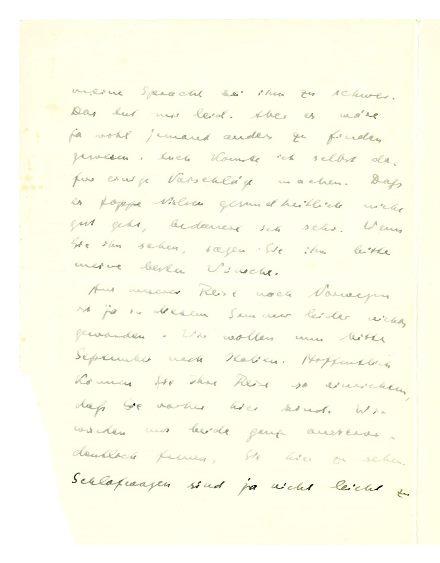 meine Sprache sei ihm zu schwer.
Das tut mir leid. Aber es wäre
ja wohl jemand anders zu finden
gewesen. Auch könnte ich selbst da-
für einige Vorschläge machen. Daß
es gesundheitlich nicht
gut geht, bedauere ich sehr. Wenn
Sie ihn sehen, sagen Sie ihm bitte
meine besten Wünsche.
Aus unserer Reise nach Norwegen
ist ja in diesem Sommer leider nichts
geworden. Wir wollen nun Mitte
September nach Italien. Hoffentlich
können Sie Ihre Reise so einrichten,
daß Sie vorher hier sind. Wir
würden uns beide ganz ausseror-
dentlich freuen, Sie hier zu sehen.
Schlafwagen sind ja nicht leicht zu